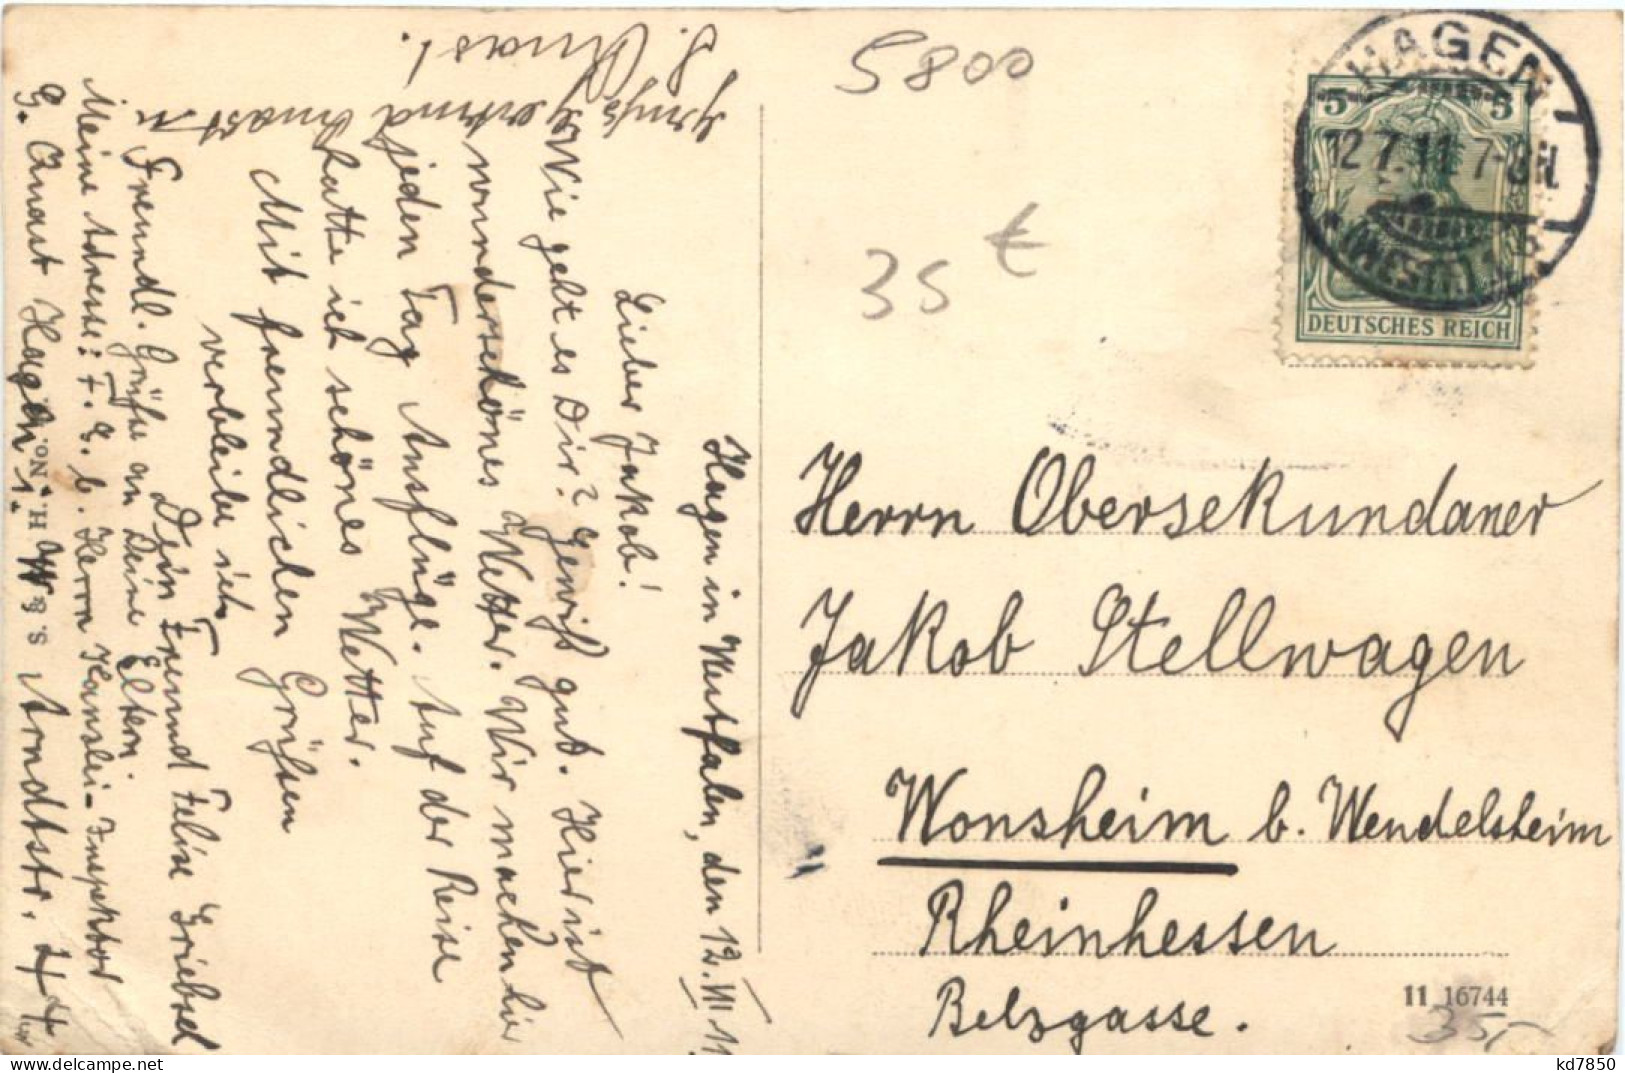 Hagen in Westfalen, den 12. VII 11
Lieber Jakob!
Wie geht es Dir? Gewiß gut. Hier ist
wunderschönes Wetter. Wir machen hier
jeden Tag Ausflüge. Auf der Reise
hatte ich schönes Wetter.
Mit freundlichen Grüßen
verbleibe ich
Dein Freund Felix Griebel
Freundl. Grüße an Deine Eltern.
Meine Adresse: F. G. b. Herrn Kanzlei-Inspektor
G. Anast Hagen i. W. Arndtstr. 44
Gertrud Anast
G. Anast.
S. & S. H. No.
5800
35
HAGEN
12.7.11 7-8N
(WESTF.)
5 5
DEUTSCHES REICH
Herrn Obersekundaner
Jakob Stellwagen
Wonsheim b. Wendelsheim
Rheinhessen
Belzgasse.
11 16744
kd7850